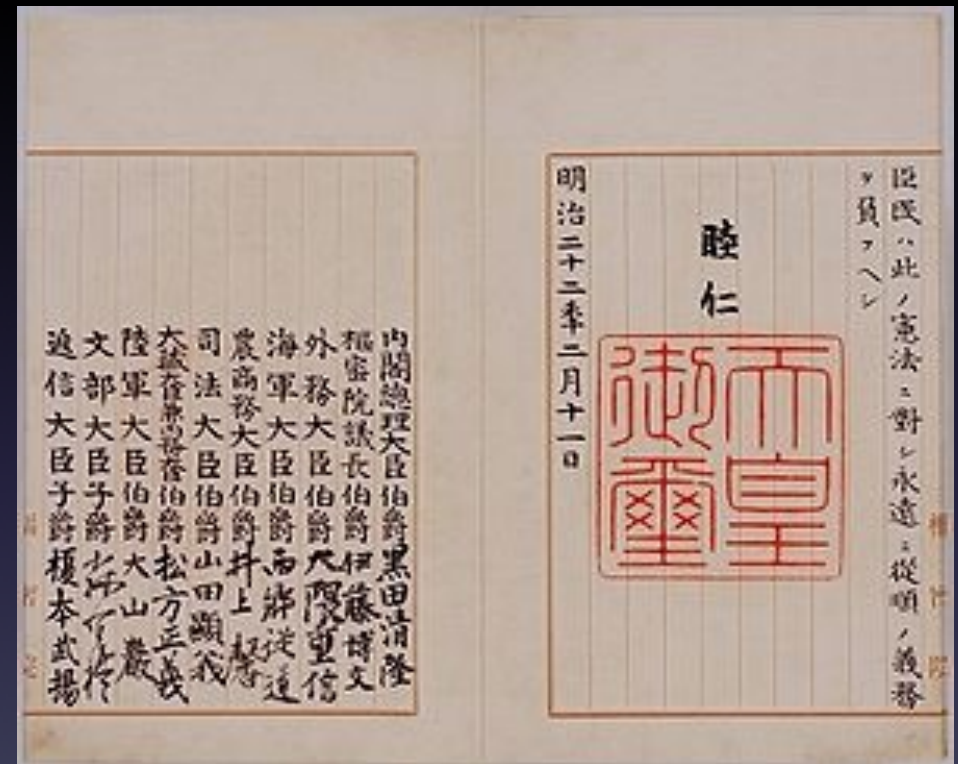 臣民ハ此ノ憲法ニ對シ永遠ニ從順ノ義務
ヲ負フヘシ
睦仁
天皇
御璽
明治二十二秊二月十一日
内閣總理大臣伯爵黒田清隆
樞密院議長伯爵伊藤博文
外務大臣伯爵大隈重信
海軍大臣伯爵西郷從道
農商務大臣伯爵井上馨
司法大臣伯爵山田顯義
大藏大臣兼内務大臣伯爵松方正義
陸軍大臣伯爵大山巖
文部大臣子爵
遞信大臣子爵榎本武揚